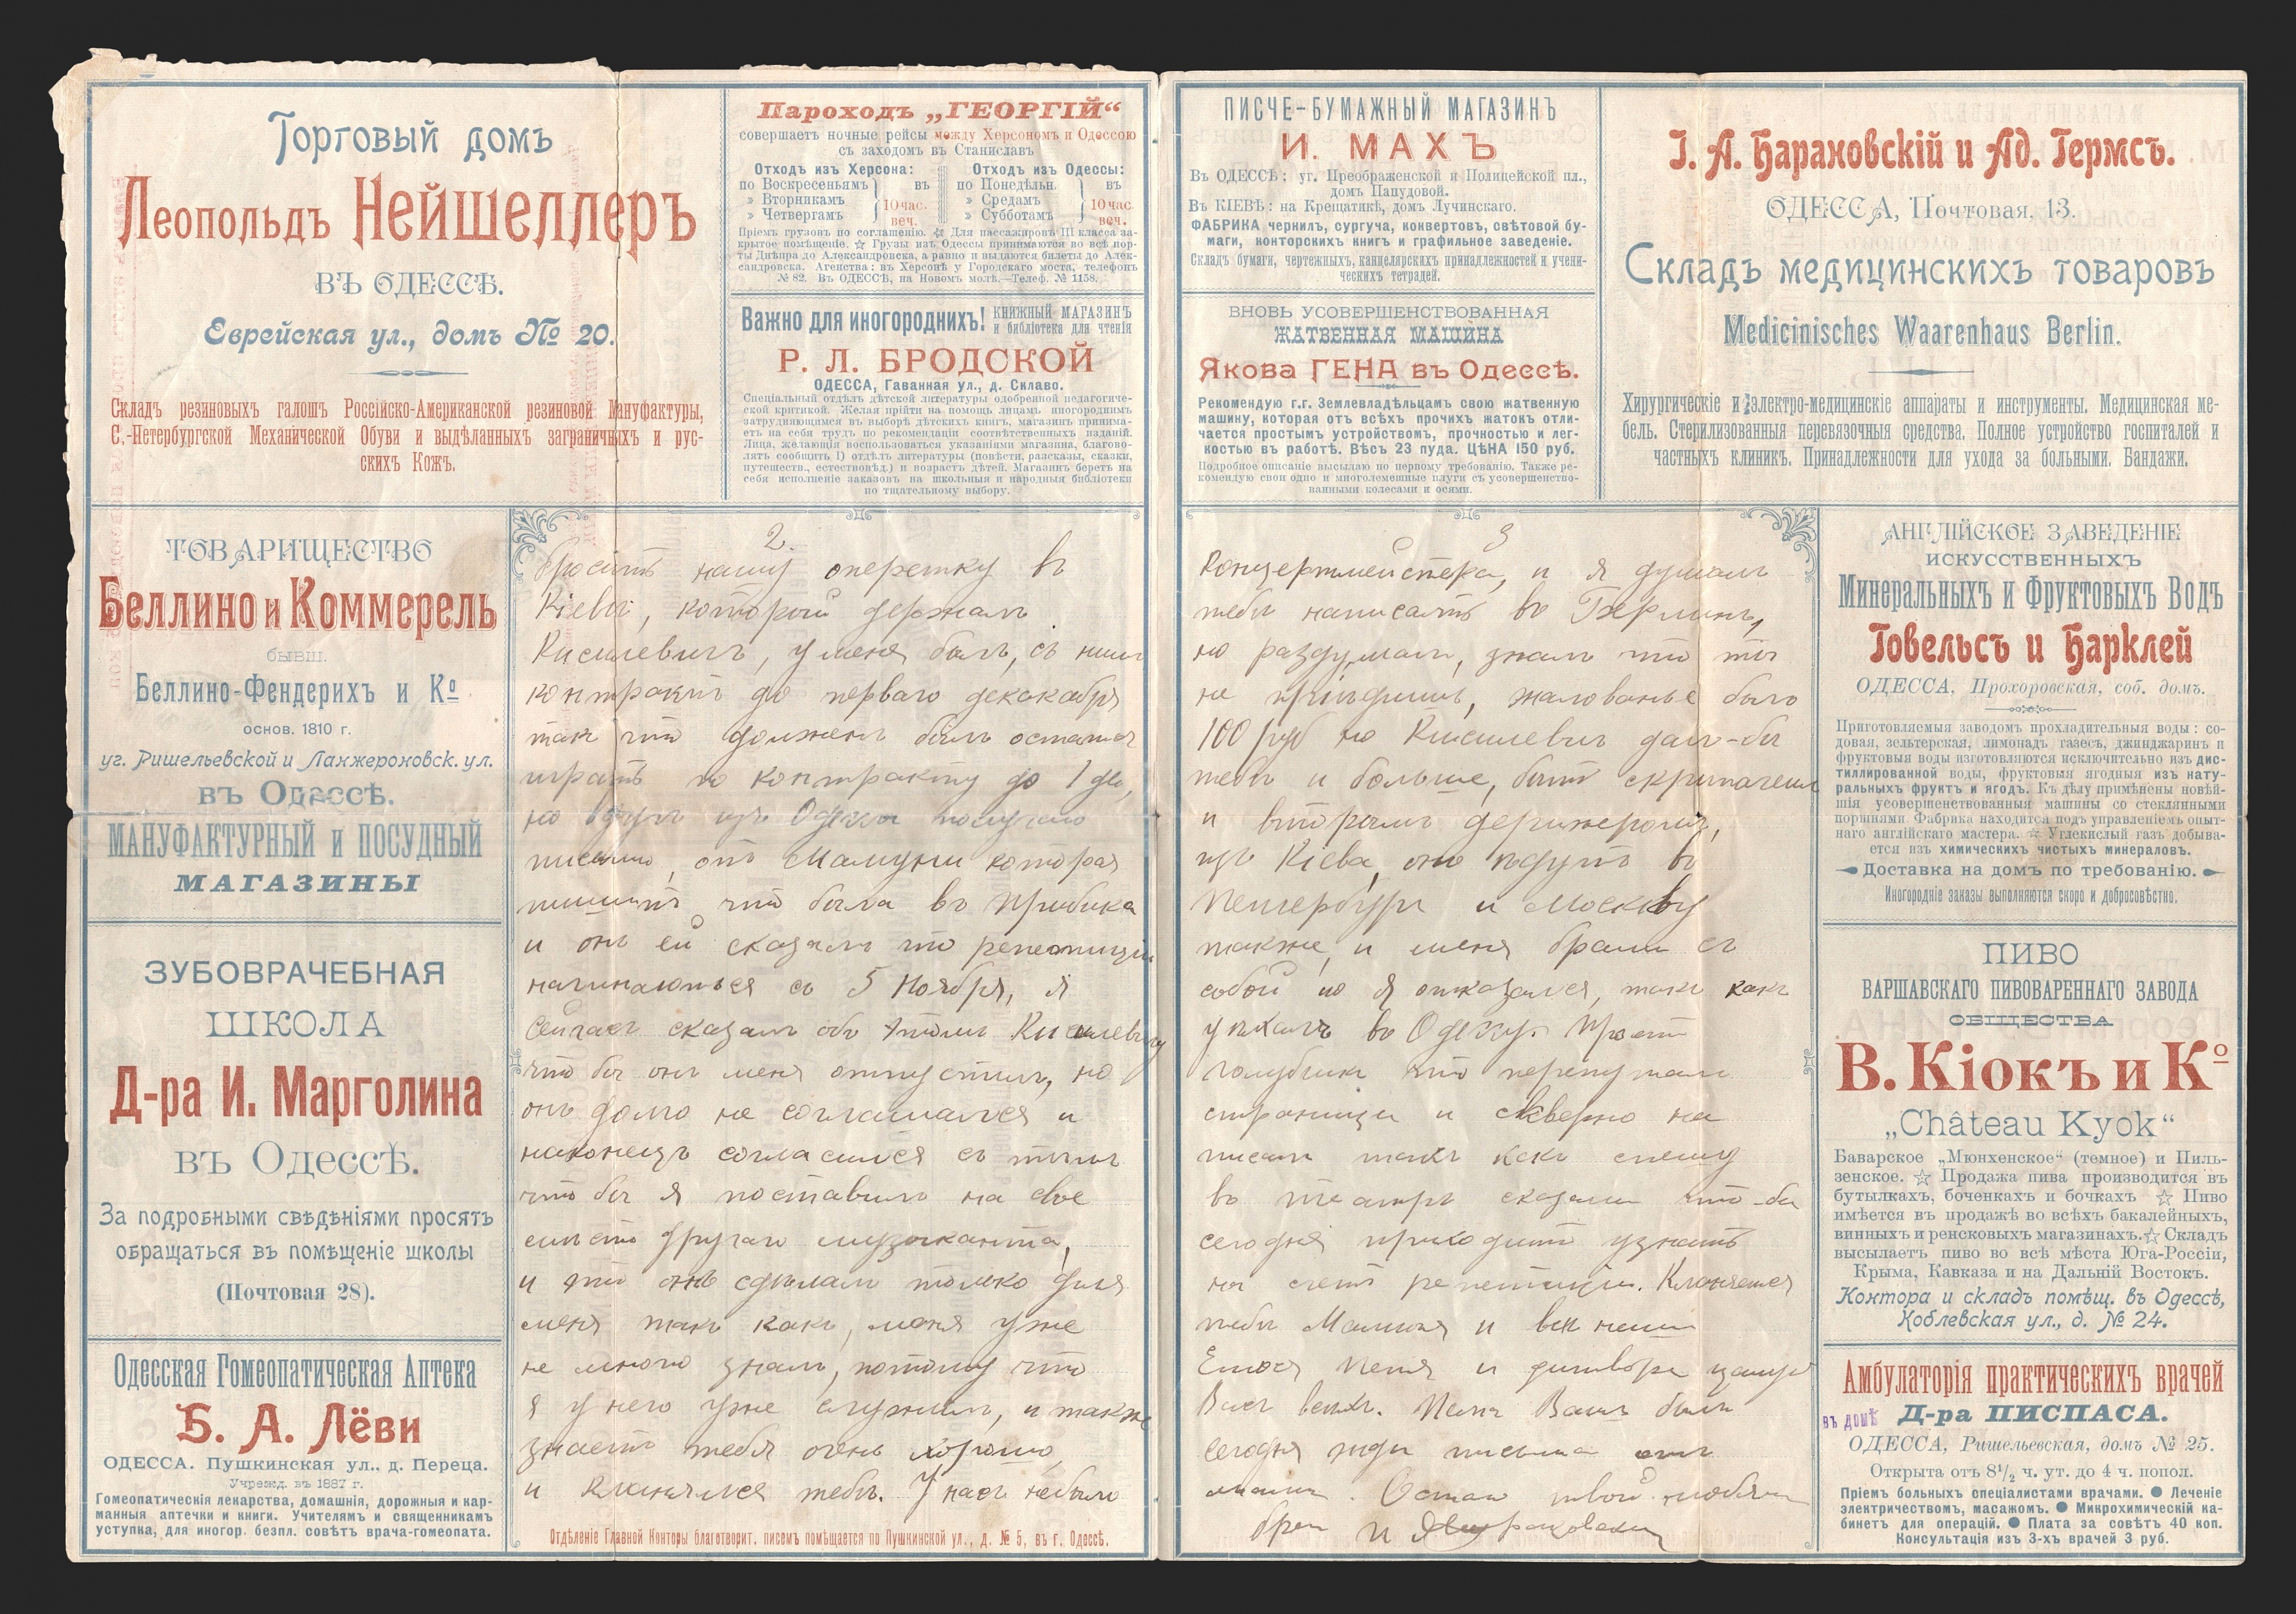 Торговый домъ
Леопольдъ Нейшеллеръ
ВЪ ОДЕССѢ.
Еврейская ул., домъ № 20.
Складъ резиновыхъ галошъ Россійско-Американской резиновой Мануфактуры,
С.-Петербургской Механической Обуви и выдѣланныхъ заграничныхъ и рус-
скихъ Кожъ.
Пароходъ „ГЕОРГІЙ“
совершаетъ ночные рейсы между Херсономъ и Одессою
съ заходомъ въ Станиславъ
Отходъ изъ Херсона:
по Воскресеньямъ
» Вторникамъ
» Четвергамъ
въ
10 час.
веч.
Отходъ изъ Одессы:
по Понедѣльн.
» Средамъ
» Субботамъ
въ
10 час.
веч.
Пріемъ грузовъ по соглашенію. ☆ Для пассажировъ III класса за-
крытое помѣщеніе. ☆ Грузы изъ Одессы принимаются во всѣ пор-
ты Днѣпра до Александровска, а равно и выдаются билеты до Алек-
сандровска. Агенства: въ Херсонѣ у Городскаго моста, телефонъ
№ 82. Въ ОДЕССѢ, на Новомъ молѣ.—Телеф. № 1158.
Важно для иногороднихъ!
КНИЖНЫЙ МАГАЗИНЪ
и библіотека для чтенія
Р. Л. БРОДСКОЙ
ОДЕССА, Гаванная ул., д. Склаво.
Спеціальный отдѣлъ дѣтской литературы одобренной педагогиче-
ской критикой. Желая прійти на помощь лицамъ иногороднимъ
затрудняющимся въ выборѣ дѣтскихъ книгъ, магазинъ принима-
етъ на себя трудъ по рекомендаціи соотвѣтственныхъ изданій.
Лица, желающія воспользоваться указаніями магазина, благово-
лятъ сообщить 1) отдѣлъ литературы (повѣсти, разсказы, сказки,
путешеств., естествовѣд.) и возрастъ дѣтей. Магазинъ беретъ на
себя исполненіе заказовъ на школьныя и народныя библіотеки
по тщательному выбору.
ПИСЧЕ-БУМАЖНЫЙ МАГАЗИНЪ
И. МАХЪ
Въ ОДЕССѢ: уг. Преображенской и Полицейской пл.,
домъ Папудовой.
Въ КІЕВѢ: на Крещатикѣ, домъ Лучинскаго.
ФАБРИКА чернилъ, сургуча, конвертовъ, свѣтовой бу-
маги, конторскихъ книгъ и графильное заведеніе.
Складъ бумаги, чертежныхъ, канцелярскихъ принадлежностей и учени-
ческихъ тетрадей.
ВНОВЬ УСОВЕРШЕНСТВОВАННАЯ
ЖАТВЕННАЯ МАШИНА
Якова ГЕНА въ Одессѣ.
Рекомендую г.г. Землевладѣльцамъ свою жатвенную
машину, которая отъ всѣхъ прочихъ жатокъ отли-
чается простымъ устройствомъ, прочностью и лег-
костью въ работѣ. Вѣсъ 23 пуда. ЦѢНА 150 руб.
Подробное описаніе высылаю по первому требованію. Также ре-
комендую свои одно и многолемешные плуги съ усовершенство-
ванными колесами и осями.
І. А. Барановскій и Ад. Гермсъ.
ОДЕССА, Почтовая, 13.
Складъ медицинскихъ товаровъ
Medicinisches Waarenhaus Berlin.
Хирургическіе и электро-медицинскіе аппараты и инструменты. Медицинская ме-
бель. Стерилизованныя перевязочныя средства. Полное устройство госпиталей и
частныхъ клиникъ. Принадлежности для ухода за больными. Бандажи.
ТОВАРИЩЕСТВО
Беллино и Коммерель
бывш.
Беллино-Фендерихъ и Ко
основ. 1810 г.
уг. Ришельевской и Ланжероновск. ул.
въ Одессѣ.
МАНУФАКТУРНЫЙ и ПОСУДНЫЙ
МАГАЗИНЫ
ЗУБОВРАЧЕБНАЯ
ШКОЛА
Д-ра И. Марголина
въ Одессѣ.
За подробными свѣдѣніями просятъ
обращаться въ помѣщеніе школы
(Почтовая 28).
Одесская Гомеопатическая Аптека
Б. А. Лёви
ОДЕССА. Пушкинская ул., д. Переца.
Учрежд. въ 1887 г.
Гомеопатическія лекарства, домашнія, дорожныя и кар-
манныя аптечки и книги. Учителямъ и священникамъ
уступка, для иногор. безпл. совѣтъ врача-гомеопата.
2.
бросить нашу оперетку въ
Кіевѣ, который держалъ
Кисилевичъ, у меня былъ, съ нимъ
контрактъ до перваго декакабря
такъ что долженъ былъ остаться
играть по контракту до 1 де,
но вдругъ изъ Одессы получаю
письмо, отъ Мамуни которая
пишитъ что была въ Прибика
и онъ ей сказалъ что репетиціи
начинаються съ 5 Ноября, я
Сейчасъ сказалъ объ этомъ Кисилевичу
что бы онъ меня отпустилъ, но
онъ долго не соглашался и
наконецъ согласился съ тѣмъ
что бы я поставилъ на свое
мѣсто другаго музыканта,
и это онъ сдѣлалъ только для
меня такъ какъ, меня уже
не много зналъ, потому что
я у него уже служилъ, и также
знаетъ тебя очень хорошо,
и кланялся тебѣ. У насъ небыло
Отдѣленіе Главной Конторы благотворит. писемъ помѣщается по Пушкинской ул., д. № 5, въ г. Одессѣ.
3
Концертмейстера, и я думалъ
тебѣ написать въ Берлинъ,
но раздумалъ, зналъ что ты
не пріѣдишь, жалованье было
100 руб но Кисилевич далъ-бы
тебѣ и больше, быть скрипачемъ
и вторымъ дерижеромъ,
изъ Кіева, они ѣдутъ въ
Петербургъ и Москву
также, и меня брали съ
собой но я отказался, такъ какъ
уѣхалъ въ Одессу. Прости
голубчикъ что перепуталъ
страници и скверно на
писалъ такъ какъ спешу
въ театръ сказали что-бы
сегодня приходить узнать
на счетъ репетиціи. Кланяется
тебѣ Маманя и всѣ наши
Петя и дитвора цалую
Васъ всѣхъ. Папа Вашъ былъ
сегодня жди письма отъ
мамы. Остаю твой любящ
братъ И
АНГЛІЙСКОЕ ЗАВЕДЕНІЕ
ИСКУССТВЕННЫХЪ
Минеральныхъ и Фруктовыхъ Водъ
Говельсъ и Барклей
ОДЕССА, Прохоровская, соб. домъ.
Приготовляемыя заводомъ прохладительныя воды: со-
довая, зельтерская, лимонадъ газесъ, джинджаринъ и
фруктовыя воды изготовляются исключительно изъ дис-
тиллированной воды, фруктовыя ягодныя изъ нату-
ральныхъ фруктъ и ягодъ. Къ дѣлу примѣнены новѣй-
шія усовершенствованныя машины со стеклянными
поршнями. Фабрика находится подъ управленіемъ опыт-
наго англійскаго мастера. ☆ Углекислый газъ добыва-
ется изъ химическихъ чистыхъ минераловъ.
Доставка на домъ по требованію.
Иногородніе заказы выполняются скоро и добросовѣстно.
ПИВО
ВАРШАВСКАГО ПИВОВАРЕННАГО ЗАВОДА
ОБЩЕСТВА
В. Кіокъ и Ко
„Château Kyok“
Баварское „Мюнхенское“ (темное) и Пиль-
зенское. ☆ Продажа пива производится въ
бутылкахъ, боченкахъ и бочкахъ ☆ Пиво
имѣется въ продажѣ во всѣхъ бакалейныхъ,
винныхъ и ренсковыхъ магазинахъ. ☆ Складъ
высылаетъ пиво во всѣ мѣста Юга-Россіи,
Крыма, Кавказа и на Дальній Востокъ.
Контора и складъ помѣщ. въ Одессѣ,
Коблевская ул., д. № 24.
Амбулаторія практическихъ врачей
въ домѣ Д-ра ПИСПАСА.
ОДЕССА, Ришельевская, домъ № 25.
Открыта отъ 8½ ч. ут. до 4 ч. попол.
Пріемъ больныхъ спеціалистами врачами. ● Леченіе
электричествомъ, масажомъ. ● Микрохимическій ка-
бинетъ для операцій. ● Плата за совѣтъ 40 коп.
Консультація изъ 3-хъ врачей 3 руб.